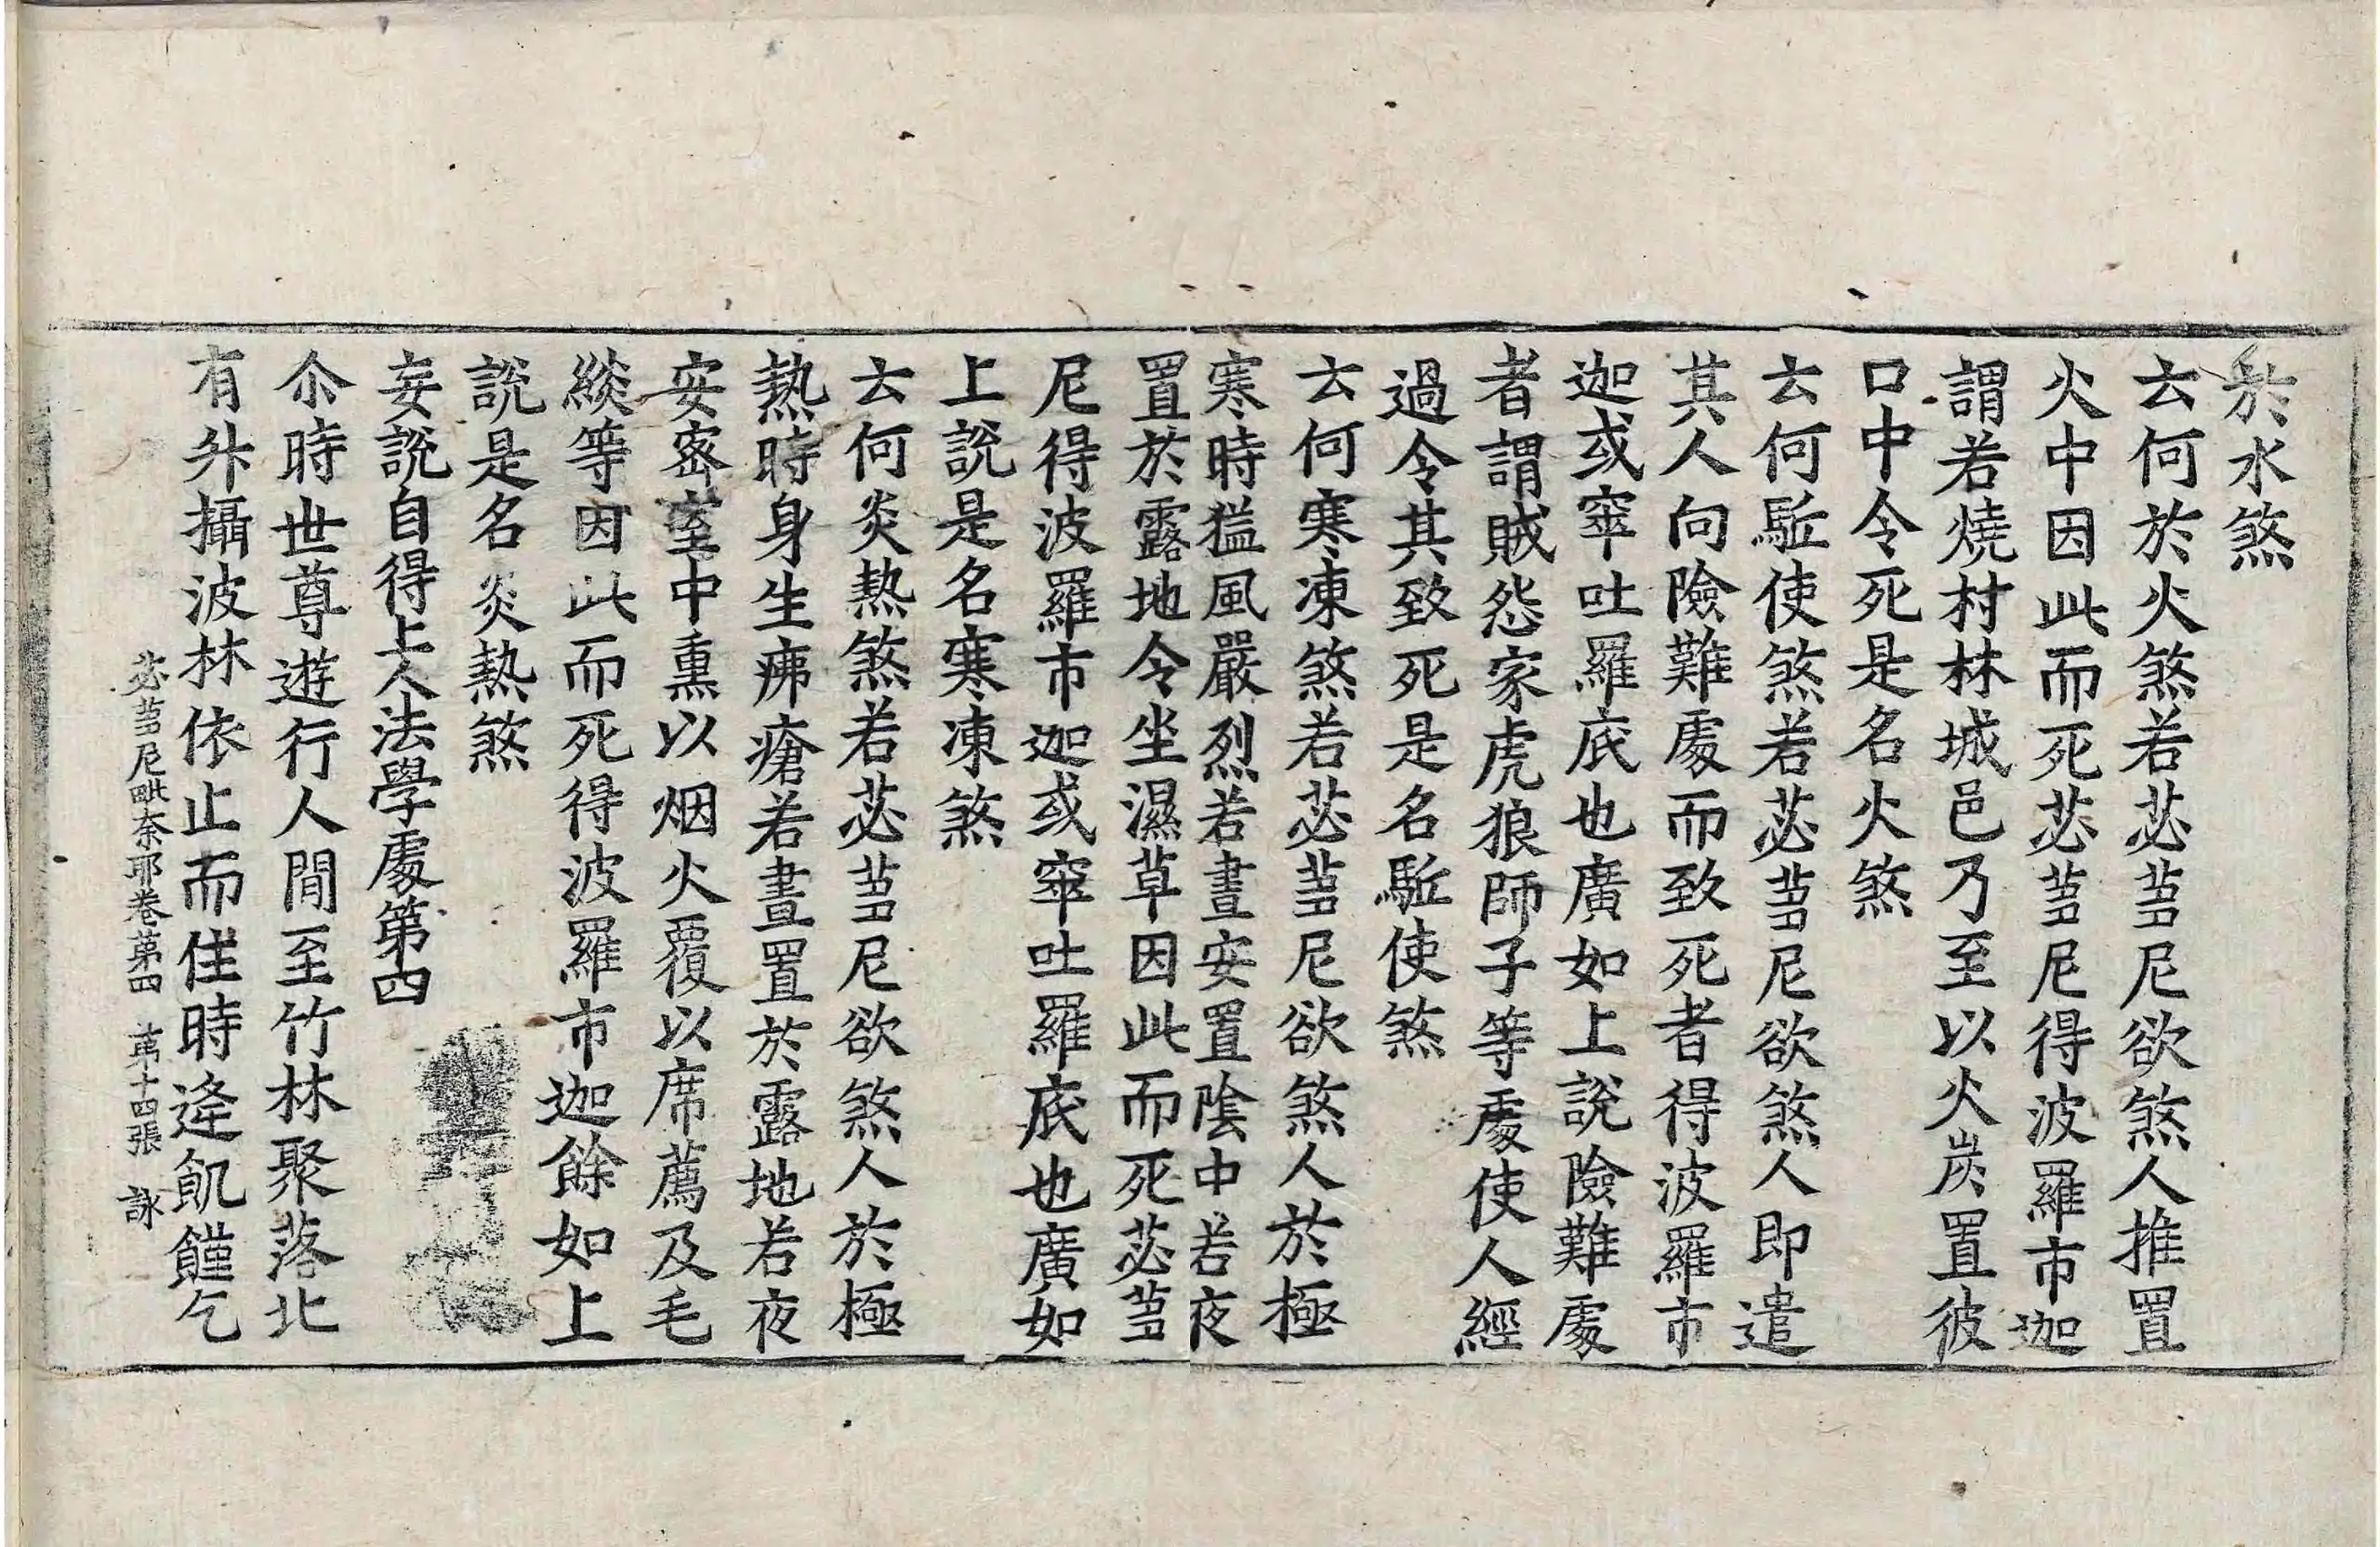 於水煞
云何於火煞若苾芻尼欲煞人推置
火中因此而死苾芻尼得波羅市迦
謂若燒村林城邑乃至以火炭置彼
口中令死是名火煞
云何駈使煞若苾芻尼欲煞人即遣
其人向險難處而致死者得波羅市
迦或窣吐羅底也廣如上說險難處
者謂賊怨家虎狼師子等處使人經
過令其致死是名駈使煞
云何寒凍煞若苾芻尼欲煞人於極
寒時猛風嚴烈若晝安置陰中若夜
置於露地令坐濕草因此而死苾芻
尼得波羅市迦或窣吐羅底也廣如
上說是名寒凍煞
云何炎熱煞若苾芻尼欲煞人於極
熱時身生疿瘡若晝置於露地若夜
安密室中熏以烟火覆以席薦及毛
緂等因此而死得波羅市迦餘如上
說是名炎熱煞
妄說自得上人法學處第四
尒時世尊遊行人間至竹林聚落北
有升攝波林依止而住時逢飢饉乞
苾芻尼毗奈耶卷第四 第十四張 詠